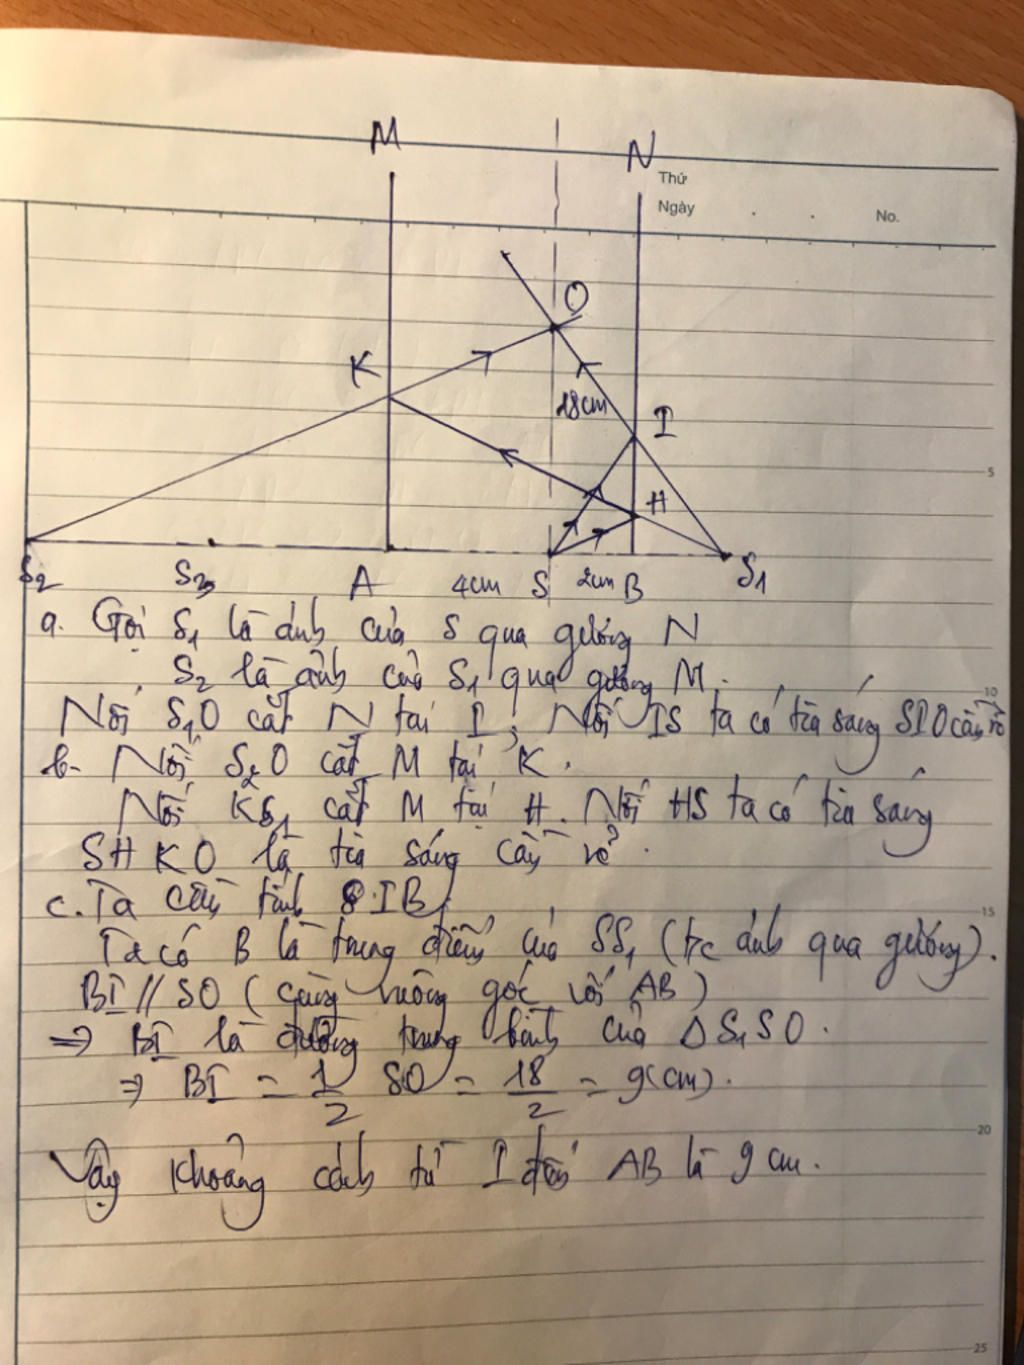 M
N
Thứ
Ngày
No.
O
K
18cm
I
5
H
S2
S3
A
4cm
S
2cm
B
S1
a. Gọi S1 là ảnh của S qua gương N
S2 là ảnh của S1 qua gương M.
10
Nối S1O cắt N tại I, Nối IS ta có tia sáng SIO cần vẽ
b- Nối S2O cắt M tại K.
Nối KS1 cắt M tại H. Nối HS ta có tia sáng
SHKO là tia sáng cần vẽ.
c. Ta cần tính IB
15
Ta có B là trung điểm của SS1 (t/c ảnh qua gương).
BI // SO (cùng vuông góc với AB)
=> BI là đường trung bình của Δ S1SO.
=> BI = 1/2 SO = 18/2 = 9(cm).
20
Vậy khoảng cách từ I đến AB là 9 cm.
25